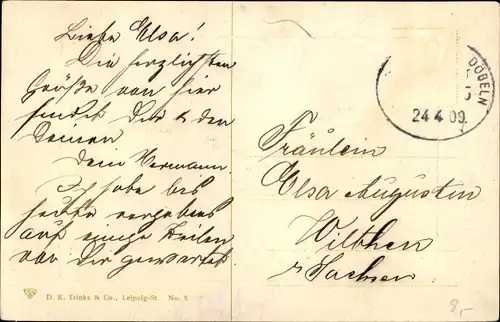 Liebe Elsa!
Die herzlichsten
Grüße von hier
sendet Dir & den
Deinen
Dein Hermann.
Ich habe bis
heute vergebens
auf einige Zeilen
von Dir gewartet.
D. K. Trinks & Co., Leipzig-St. No. 5
DÖBELN
24 4 09.
Fräulein
Elsa Augustin
Wilthen
Sachsen.
8,-